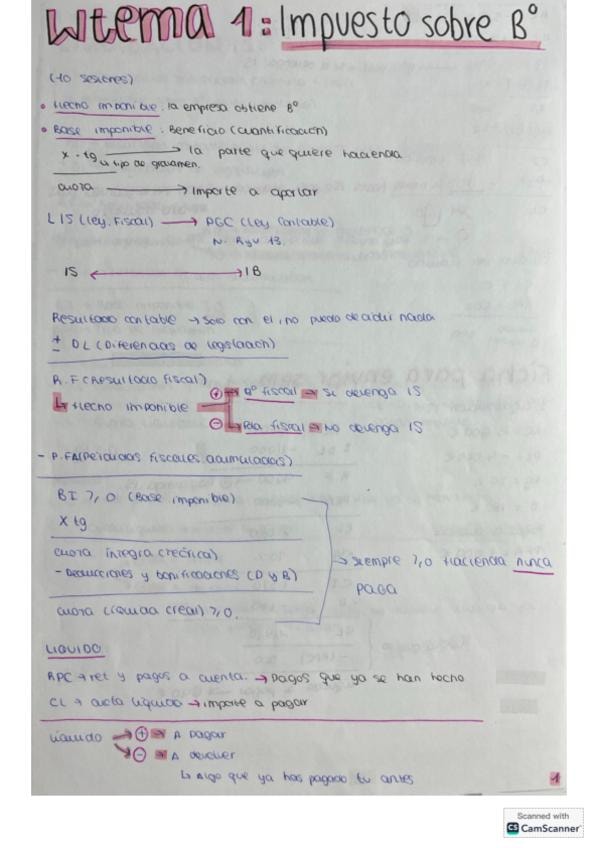 Wtema 1: Impuesto sobre Bº
(10 sesiones)
• Hecho imponible: la empresa obtiene Bº
• Base imponible: Beneficio (cuantificación)
x · tg → la parte que quiere hacienda
↳ tipo de gravamen.
cuota → importe a aportar
LIS (ley. Fiscal) → PGC (ley contable)
N. RyV 13.
IS ↔ IB
Resultado contable → Solo con el, no puedo decidir nada
± DL (Diferencias de legislación)
R.F (Resultado fiscal)
↳ Hecho imponible
⊕ → Bº fiscal → Se devenga IS
⊖ → Pda fiscal → No devenga IS
- P.FA (Pérdidas fiscales acumuladas)
BI ≥ 0 (Base imponible)
X tg
cuota íntegra (teórica)
- Deducciones y bonificaciones (D y B)
→ siempre ≥ 0 Hacienda nunca
paga
cuota líquida (real) ≥ 0.
LIQUIDO
RPC → ret y pagos a cuenta. → Pagos que ya se han hecho
CL → cuota líquida → importe a pagar
Líquido → ⊕ → A pagar
→ ⊖ → A devolver
↳ Algo que ya has pagado tu antes
1
Scanned with
CS CamScanner